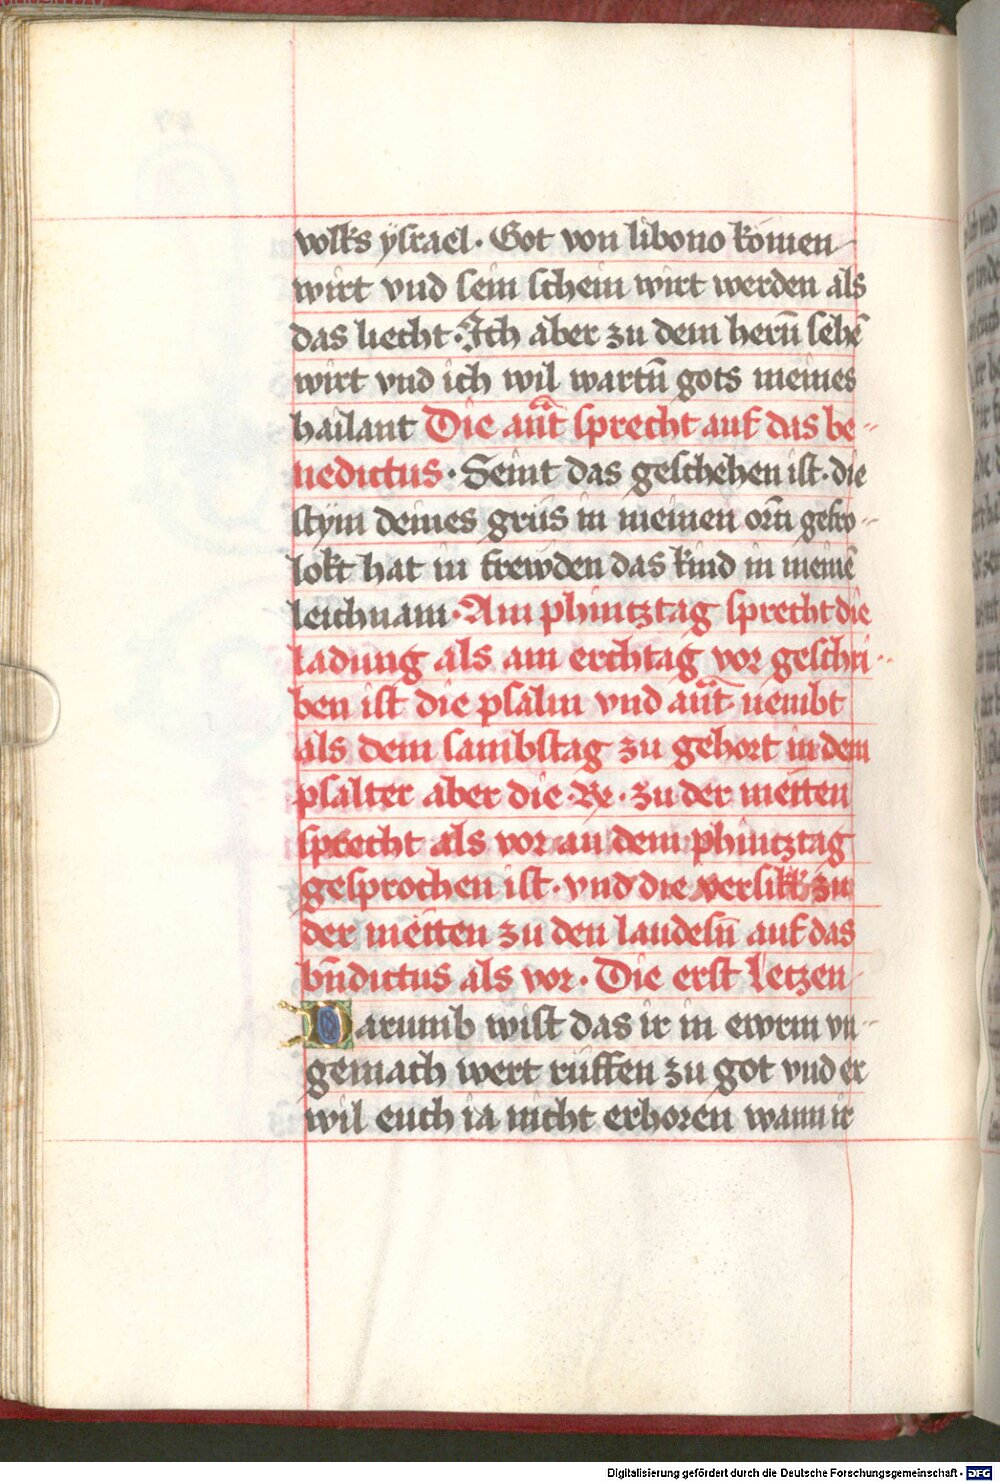 volks ÿsrael · Got von libono komen
wirt vnd sein schein wirt werden als
das liecht · Ich aber zu dem herñ sehē
wirt vnd ich wil wartñ gots meines
hailant Die añt sprecht auf das be-
nedictus · Seint das geschehen ist · die
stym deines grüs in meinen orñ gefro-
lokt hat in frewden das kind in meinē
leichnam · Am phintztag sprecht die
ladung als am erchtag vor geschri-
ben ist die psalm vnd añt nembt
als dem sambstag zu gehort in dem
psalter aber die · Re · zu der metten
sprecht als vor an dem phintztag
gesprochen ist · vnd die versikl zu
der metten zu den laudesñ auf das
bñdictus als vor · Die erst Letzen
Darumb wist das ir in ewrm vn-
gemach wert rüffen zu got vnd er
wil euch ia nicht erhoren wann ir
Digitalisierung gefördert durch die Deutsche Forschungsgemeinschaft - DFG